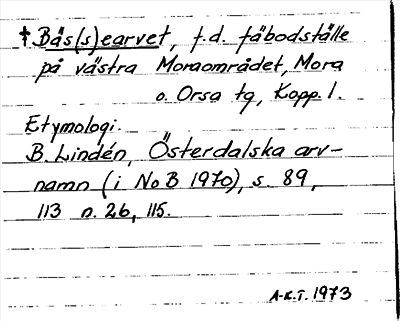 † Bås(s)earvet, f.d. fäbodställe
på västra Moraområdet, Mora
o. Orsa tg, Kopp. l.
Etymologi.
B. Lindén, Österdalska arv-
namn (i NoB 1970), s. 89,
113 n. 26, 115.
A-K.T. 1973